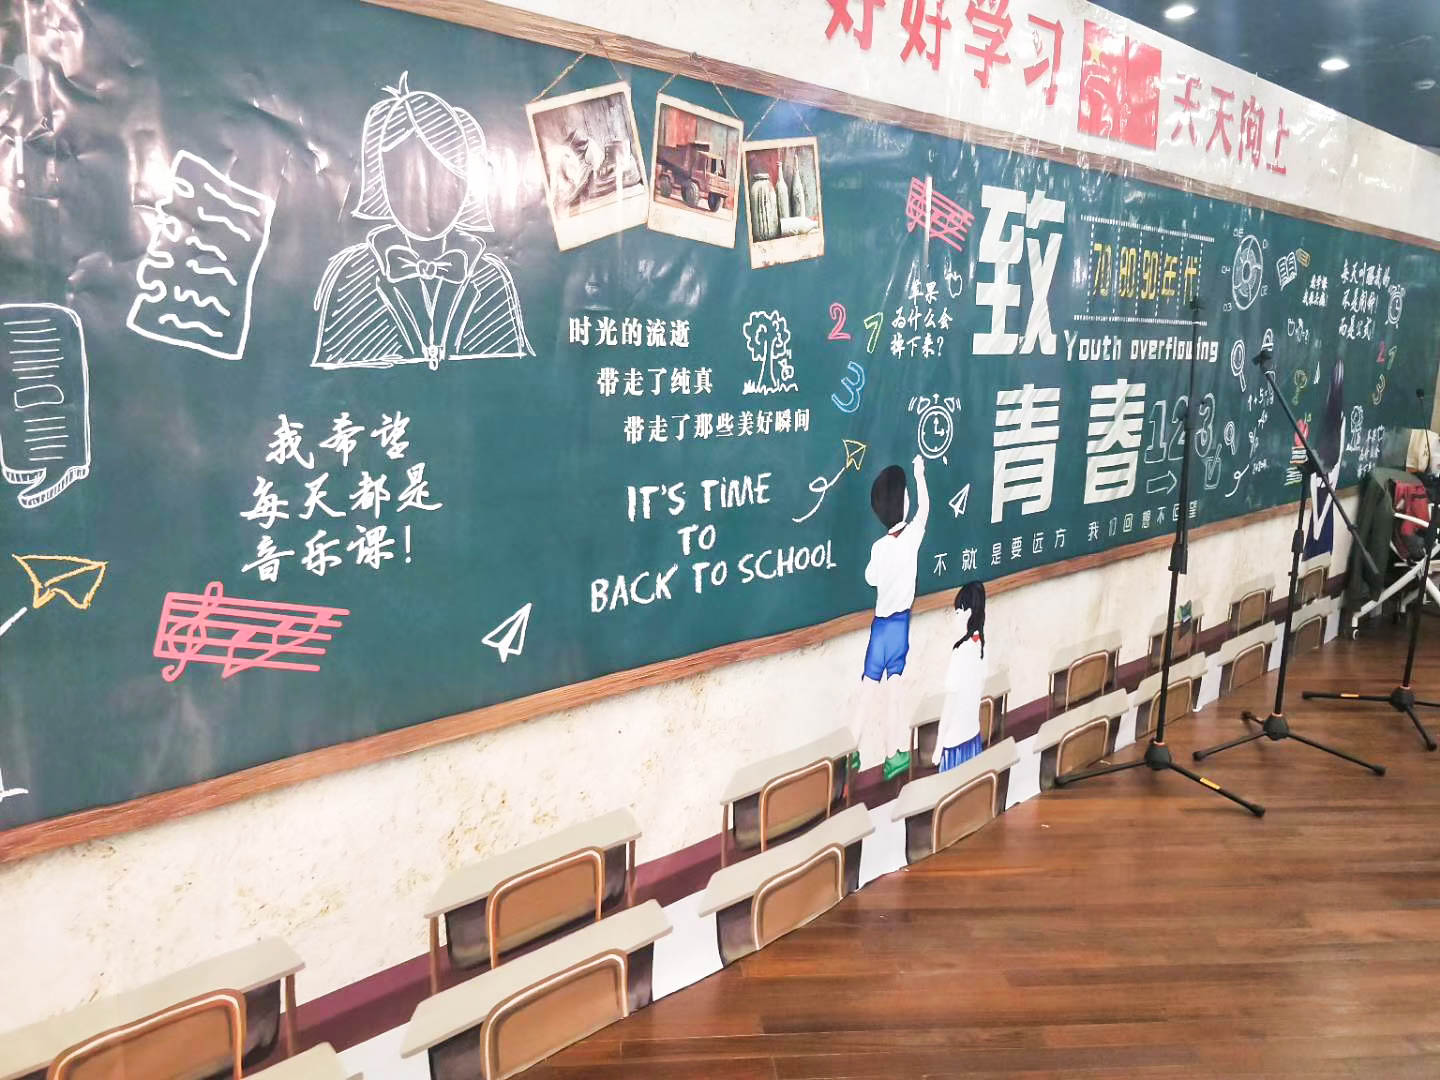 好好学习 天天向上
我希望
每天都是
音乐课!
时光的流逝
带走了纯真
带走了那些美好瞬间
IT'S TIME
TO
BACK TO SCHOOL
2
7
3
苹果
为什么会
掉下来?
致
70 80 90年代
Youth overflowing
青春
123
不就是要远方 我们回想不回望
每天叫醒我的
不是闹钟!
而是公式!